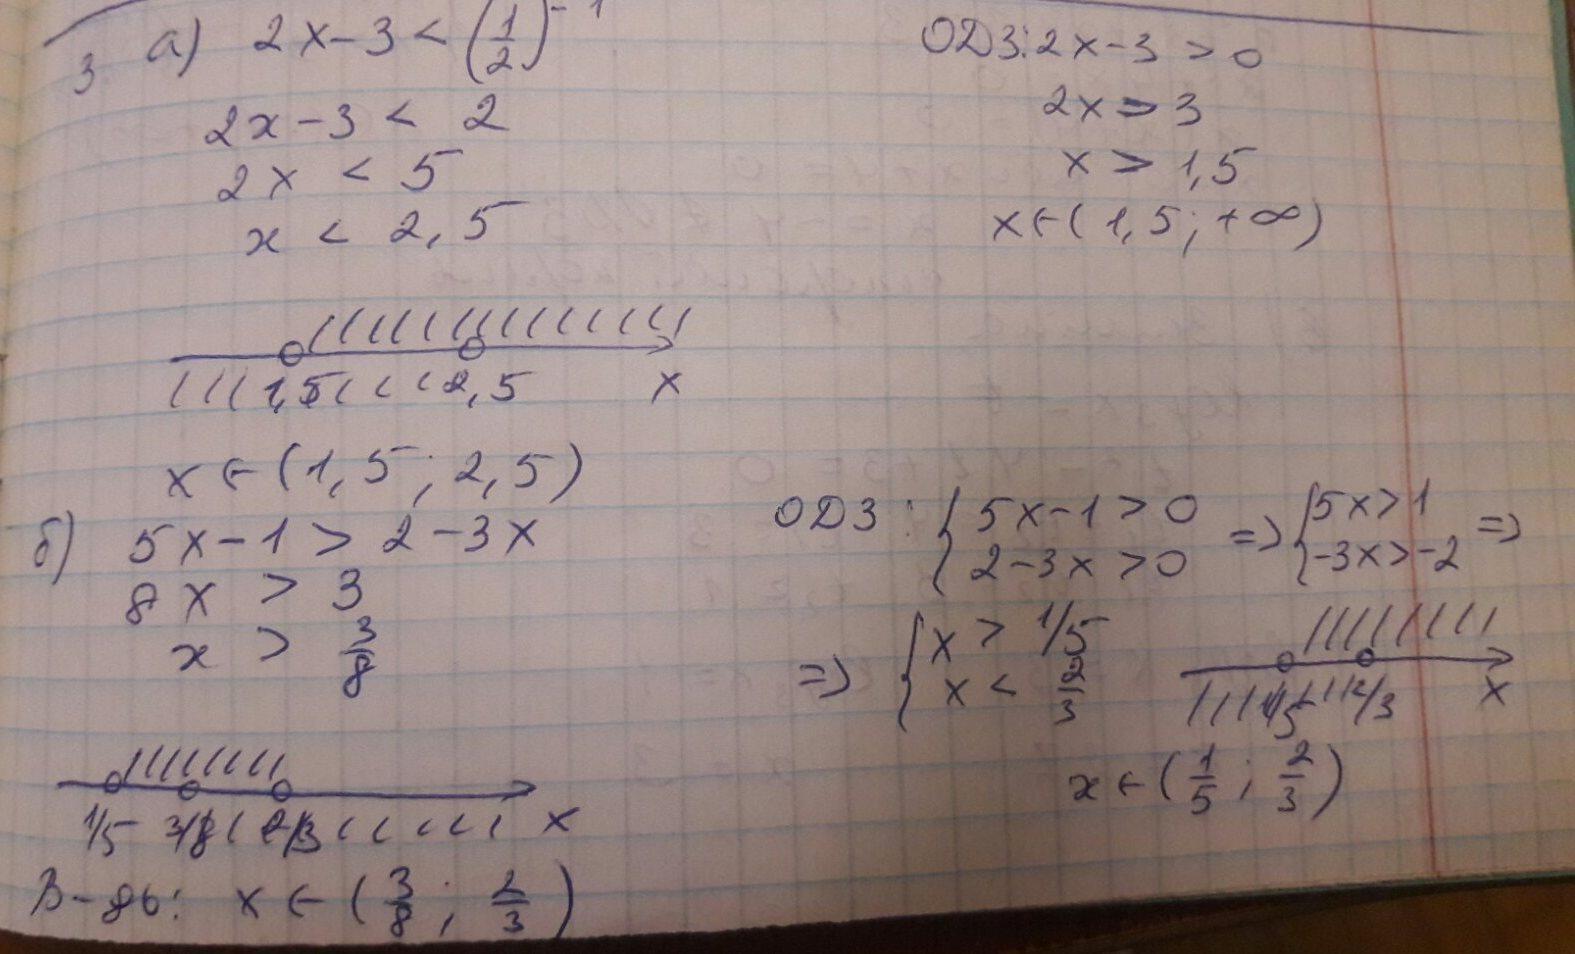 3 а) 2x-3 < (1/2)^-1
2x-3 < 2
2x < 5
x < 2,5
ОДЗ: 2x-3 > 0
2x > 3
x > 1,5
x ∈ (1,5; +∞)
1,5 2,5 x
x ∈ (1,5; 2,5)
б) 5x-1 > 2-3x
8x > 3
x > 3/8
ОДЗ: { 5x-1 > 0 => { 5x > 1 =>
2-3x > 0 -3x > -2
=> { x > 1/5
x < 2/3
1/5 2/3 x
x ∈ (1/5; 2/3)
1/5 3/8 2/3 x
В-дь: x ∈ (3/8; 2/3)